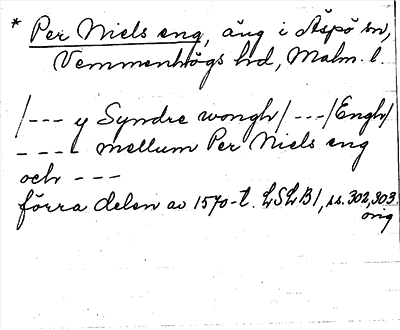 * Per Niels eng, äng i Äspö sn,
Vemmenhögs hd, Malm. l.
/--- y Syndre wongh/ ---/Engh/
---- mellum Per Niels eng
och ---
förra delen av 1570-t. LSLB1, ss. 302, 303
orig